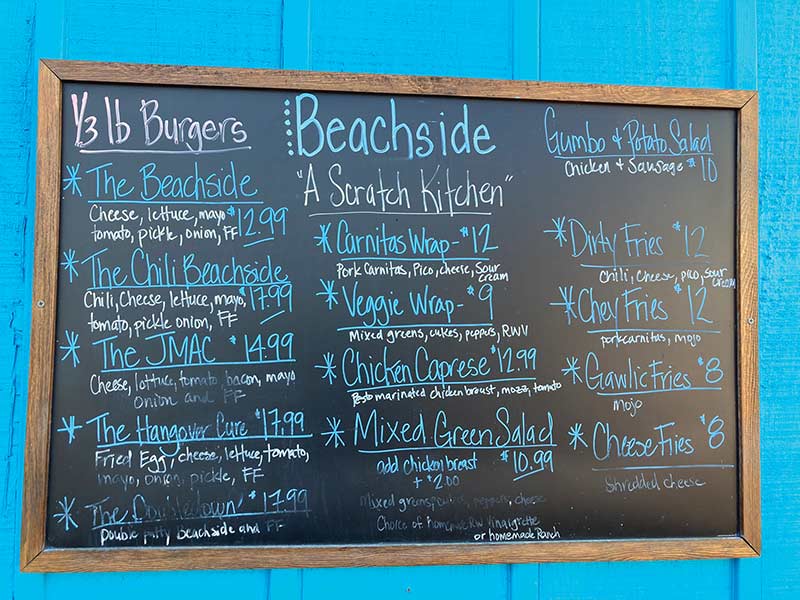 1/3 lb Burgers
* The Beachside
Cheese, lettuce, mayo
tomato, pickle, onion, FF $12.99
* The Chili Beachside
Chili, Cheese, lettuce, mayo,
tomato, pickle onion, FF $17.99
* The JMAC $14.99
Cheese, lottuce, tomato, bacon, mayo
onion and FF
* The Hangover Cure $17.99
Fried Egg, cheese, lettuce, tomato,
mayo, onion, pickle, FF
* The Doubledown $17.99
double patty beachside and FF
Beachside
"A Scratch Kitchen"
* Carnitas Wrap - $12
Pork Carnitas, Pico, cheese, Sour
cream
* Veggie Wrap - $9
Mixed greens, cukes, peppers, RWV
* Chicken Caprese $12.99
Pesto marinated chicken breast, mozz, tomato
* Mixed Green Salad
add chicken breast $10.99
+ $2.00
Mixed greens, peppers, cheese
Choice of homemade RW Vinaigrette
or homemade Ranch
Gumbo & Potato Salad
Chicken & Sausage $10
* Dirty Fries $12
Chili, Cheese, pico, sour
cream
* Chey Fries $12
pork carnitas, mojo
* Gawlic Fries $8
mojo
* Cheese Fries $8
Shredded cheese